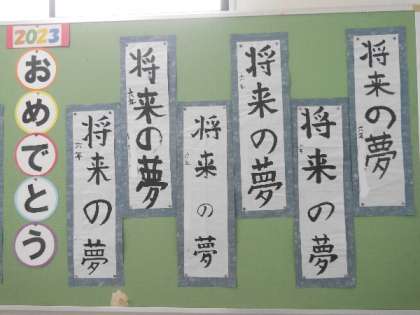 2023
おめでとう
将来の夢
六年
将来の夢
六年
将来の夢
六年
将来の夢
六年
将来の夢
将来の夢